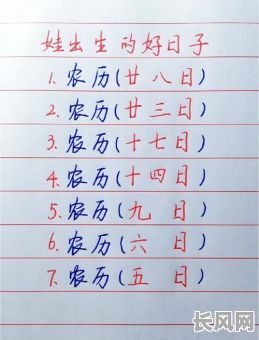 娃出生的好日子
1. 农历(廿八日)
2. 农历(廿三日)
3. 农历(十七日)
4. 农历(十四日)
5. 农历(九 日)
6. 农历(六 日)
7. 农历(五 日)
长风网